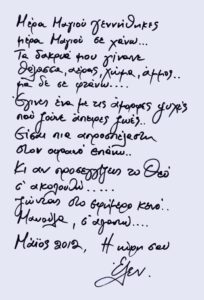 Μέρα Μαγιού γεννήθηκες
μέρα Μαγιού σε χάνω...
Τα δάκρυα μου γίναν
θάλασσα, αέρας, χώμα, άμμος..
μα δε σε φτάνω....
Έγινες ένα με τις όμορφες ψυχές
που ζούνε άπειρες ζωές..
Είσαι πια απροσπέλαστη
στον ουρανό επάνω..
Κι αν προσεγγίζεις το Θεό
σ' ακολουθώ.....
ζώντας στο εφήμερο κενό..
Μανούλα, σ' αγαπώ....
Μάϊος 2012, Η κόρη σου
Έλεν.